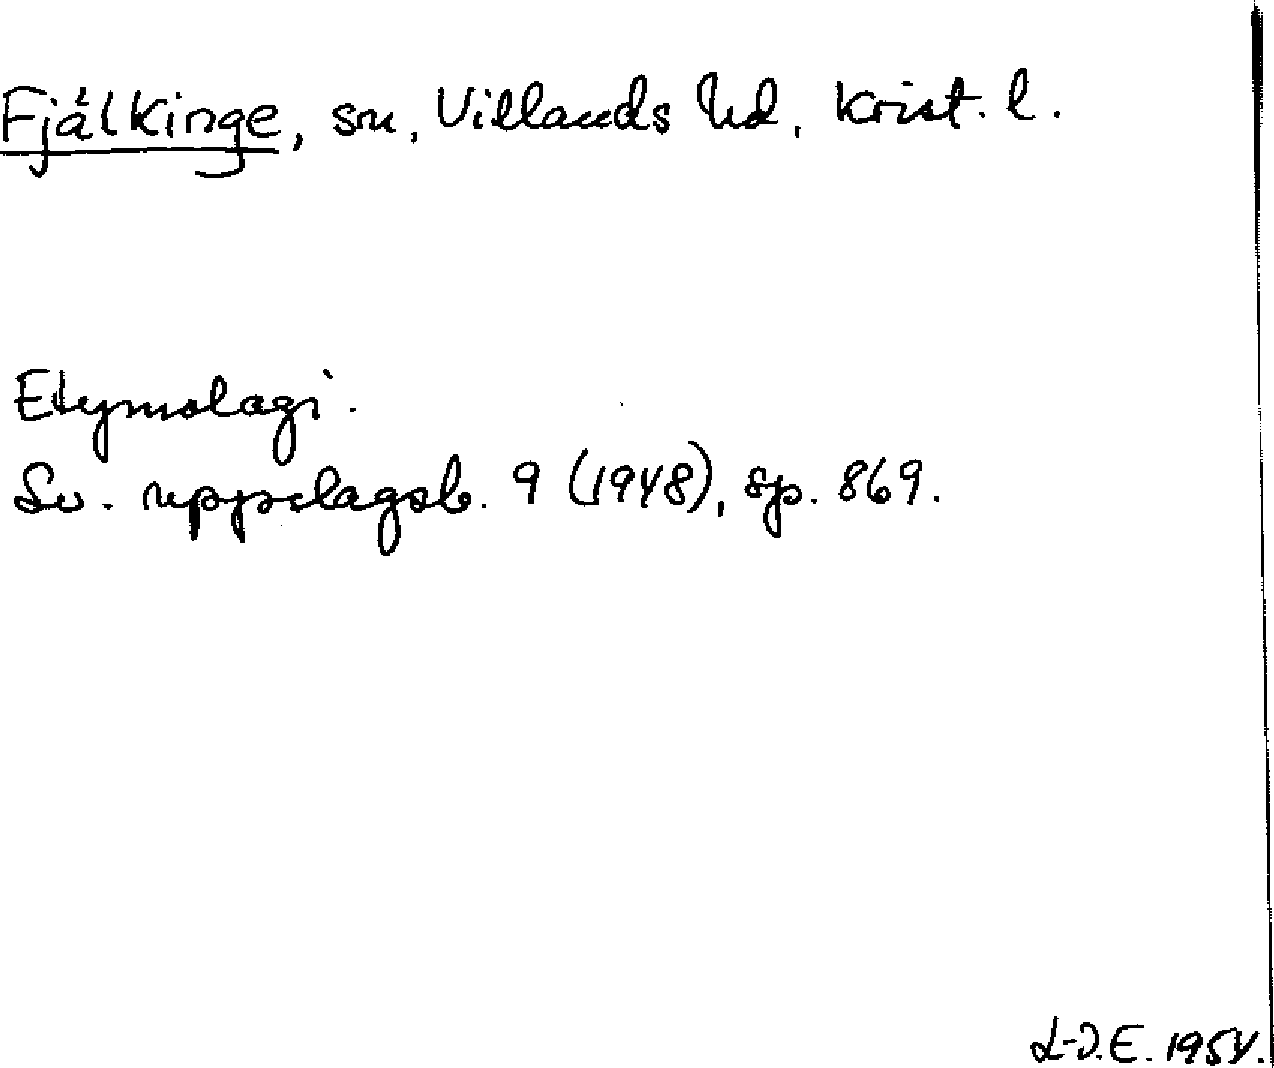 Fjälkinge, sn, Villands hd, Krist. l.
Etymologi.
Sv. uppslagsb. 9 (1948), sp. 869.
L-O.E. 1954.